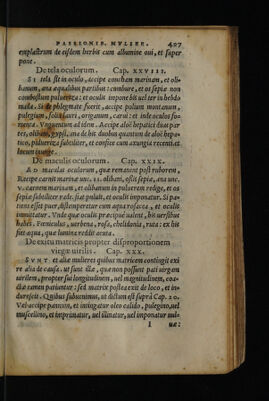 PASSIONIB. MVLIER. 427
emplastrum de eisdem herbis cum albumine oui, et super
pone.
De tela oculorum. Cap. XXVIII.
SI tela sit in oculo, accipe concham marinam, et oli-
banum, ana æqualibus partibus: comburе, et os sepiæ non
combustum puluerizа: et oculis imponе de his omnibus bis
modo. Si de flegmate fuerit, accipe pulium montanum,
pulegium,
Vnguentum ad idem. Accipe aloë hepatici duas par-
tes, olibani, gypsi, ana de his duobus quantum de aloë hepa-
tico, puluerizа subtiliter, et confice cum axungia recenti: et
locum unge.
De maculis oculorum. Cap. XXIX.
AD maculas oculorum, quæ remanent post ruborem,
Recipe carnem marinæ unc. ii. olibani, ossis sepiæ, ana unc.
v. carnem marinam, et olibanum in puluerem redige, et os
sepiæ subtiliter rade. fiat puluis, et oculis imponatur. Si pa-
tiens esset puer, distemperetur cum aqua rosacea, et oculis
immittatur. Vnde quæ oculis præcipuè ualent, his uersibus
habes. Fœniculus, uerbena, rosa, chelidonia, ruta: ex his
fiet aqua, quæ lumina reddit acuta.
De exitu matricis propter disproportionem
virgæ uirilis. Cap. XXX.
SVNT et aliæ mulieres quibus matricem contingit exi
re alia de causa. ut sunt illæ, quæ non possunt pati uirgam
uirilem, propter sui longitudinem, uel magnitudinem, coa-
ctæ tamen patiuntur: sed matrix postea exit de loco, et in-
durescit. Quibus subuenimus, ut dictum est suprà Cap. 20.
Vel accipe pannum, et intingatur oleo calido, pulegino, uel
muscellino, et imprimatur, uel illinatur, uel imponatur uul-
uæ: